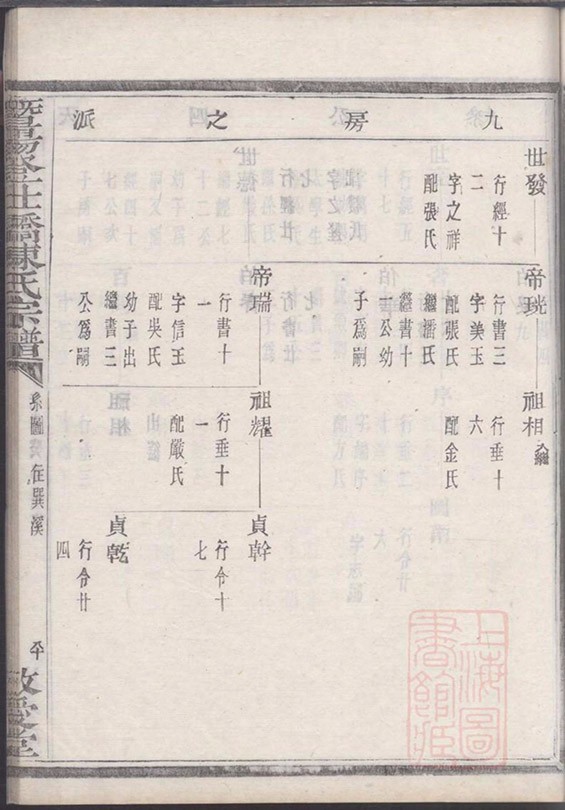 九房之派
世發
行經十二
字之祥
配張氏
帝珖
行書三
字美玉
配張氏
繼氏
繼書十一公幼子爲嗣
祖相
入繼
行垂十六
配金氏
帝瑞
行書十一
字信玉
配吳氏
幼子出繼書三公爲嗣
祖耀
行垂十一
配嚴氏
貞幹
行令十七
貞乾
行令廿四
暨陽橋陳氏宗譜
系圖
在巽溪
平
敬愛堂
上海圖書館藏